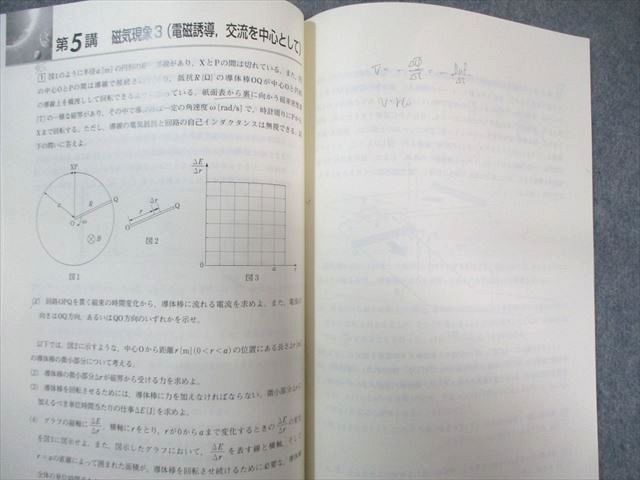 第5講 磁気現象3(電磁誘導,交流を中心として)
1 図1のように半径a[m]の円形の
があり,XとPの間は切れている。また,
の中心OとPの間は導線で接続さ
抵抗R[Ω]の導体棒OQが中心Oと円形
の導線上を接触して回転できる
ている。紙面表から裏に向かう磁束密度
[T]の一様な磁界があり,その中で導
一定の角速度ω[rad/s]で,時計周りにPか
Xまで回転する。ただし,導線の電気抵抗と回路の自己インダクタンスは無視できる。
下の問いに答えよ。
XP
a
R
Q
O
ω
B
図1
r
Δr
O
Q
図2
ΔE
Δr
0
a
r
図3
(1) 回路OPQを貫く磁束の時間変化から,導体棒に流れる電流を求めよ。また,電流の
向きはOQ方向,あるいはQO方向のいずれかを示せ。
以下では,図2に示すような,中心Oから距離r[m](0<r<a)の位置にある長さΔr[m]
の導体棒の微小部分について考える。
(2) 導体棒の微小部分Δrが磁界から受ける力を求めよ。
(3) 導体棒を回転させるためには,導体棒に力を加えなければならない。微小部分Δrに
加えるべき単位時間当たりの仕事ΔE[J]を求めよ。
(4) グラフの縦軸にΔE/Δr,横軸にrをとり,rが0からaまで変化するときのΔE/Δrの
を図3に図示せよ。また,図示したグラフにおいて,ΔE/Δrを表す線と横軸,そして
r=aの直線によって囲まれた面積が,導体棒を回転させ続けるために必要な,導体棒
V = - ΔΦ/Δt = -